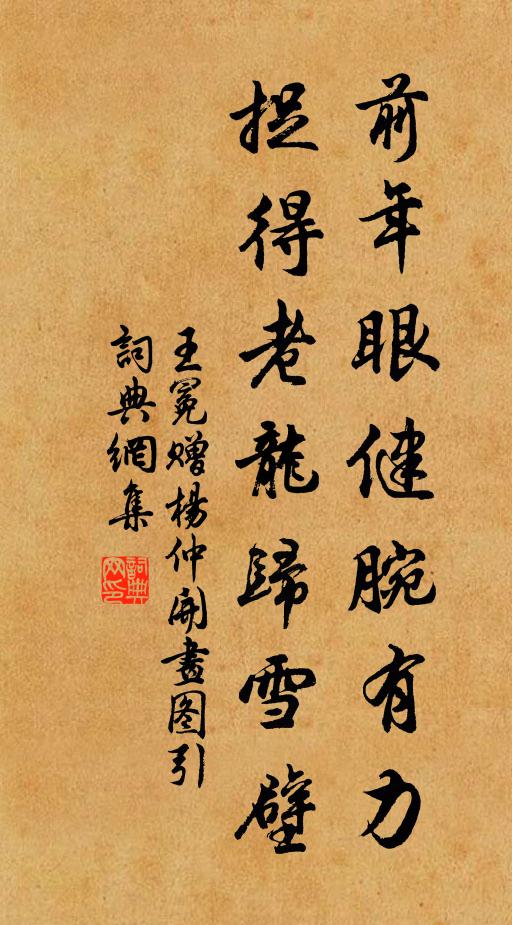 前年眼健腕有力
捉得老龍歸雪壁
王冕赠楊仲開畫图引
詞典網集
詞典网印